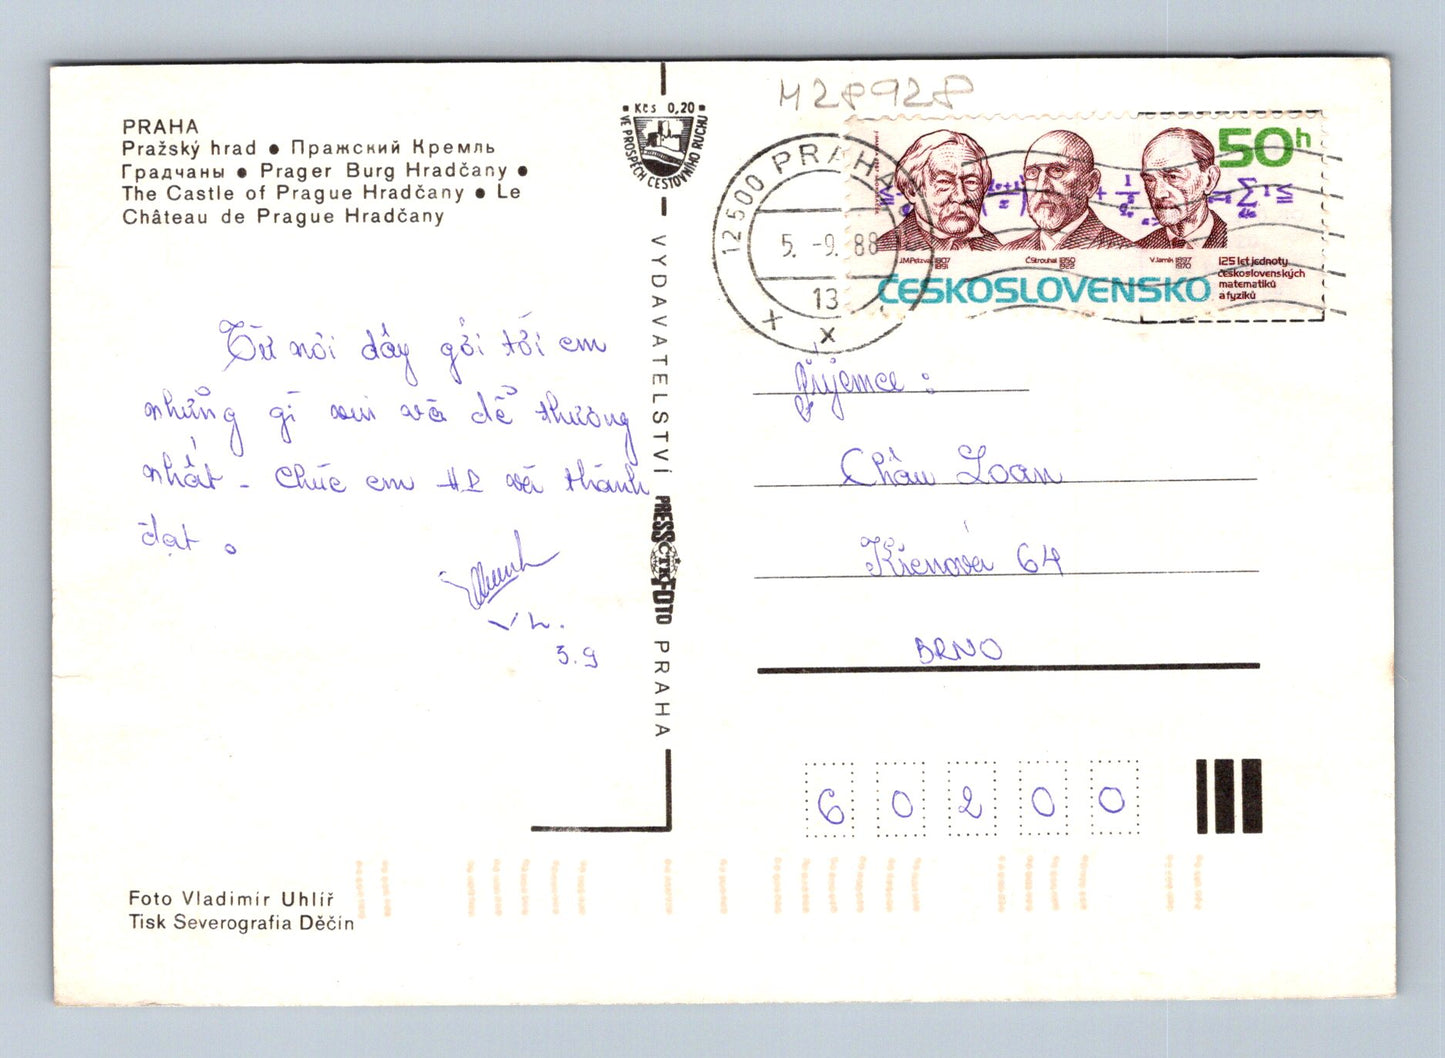 PRAHA
Pražský hrad ● Пражский Кремль
Градчаны ● Prager Burg Hradčany ●
The Castle of Prague Hradčany ● Le
Château de Prague Hradčany
Từ nơi đây gởi tới em
những gì vui và dễ thương
nhất - Chúc em HP và thành
đạt.
VL.
3.9
Foto Vladimír Uhlíř
Tisk Severografia Děčín
Kčs 0,20
VE PROSPĚCH CESTOVNÍHO RUCHU
VYDAVATELSTVÍ PRESSFOTO PRAHA
ČTK
M28928
12500 PRAHA
5. -9. 88
13
50h
J.M.Petzval 1807 1891
Č.Strouhal 1850 1922
V.Jarník 1897 1970
125 let jednoty
československých
matematiků
a fyziků
ČESKOSLOVENSKO
příjemce :
Châu Loan
Křenová 64
BRNO
6 0 2 0 0